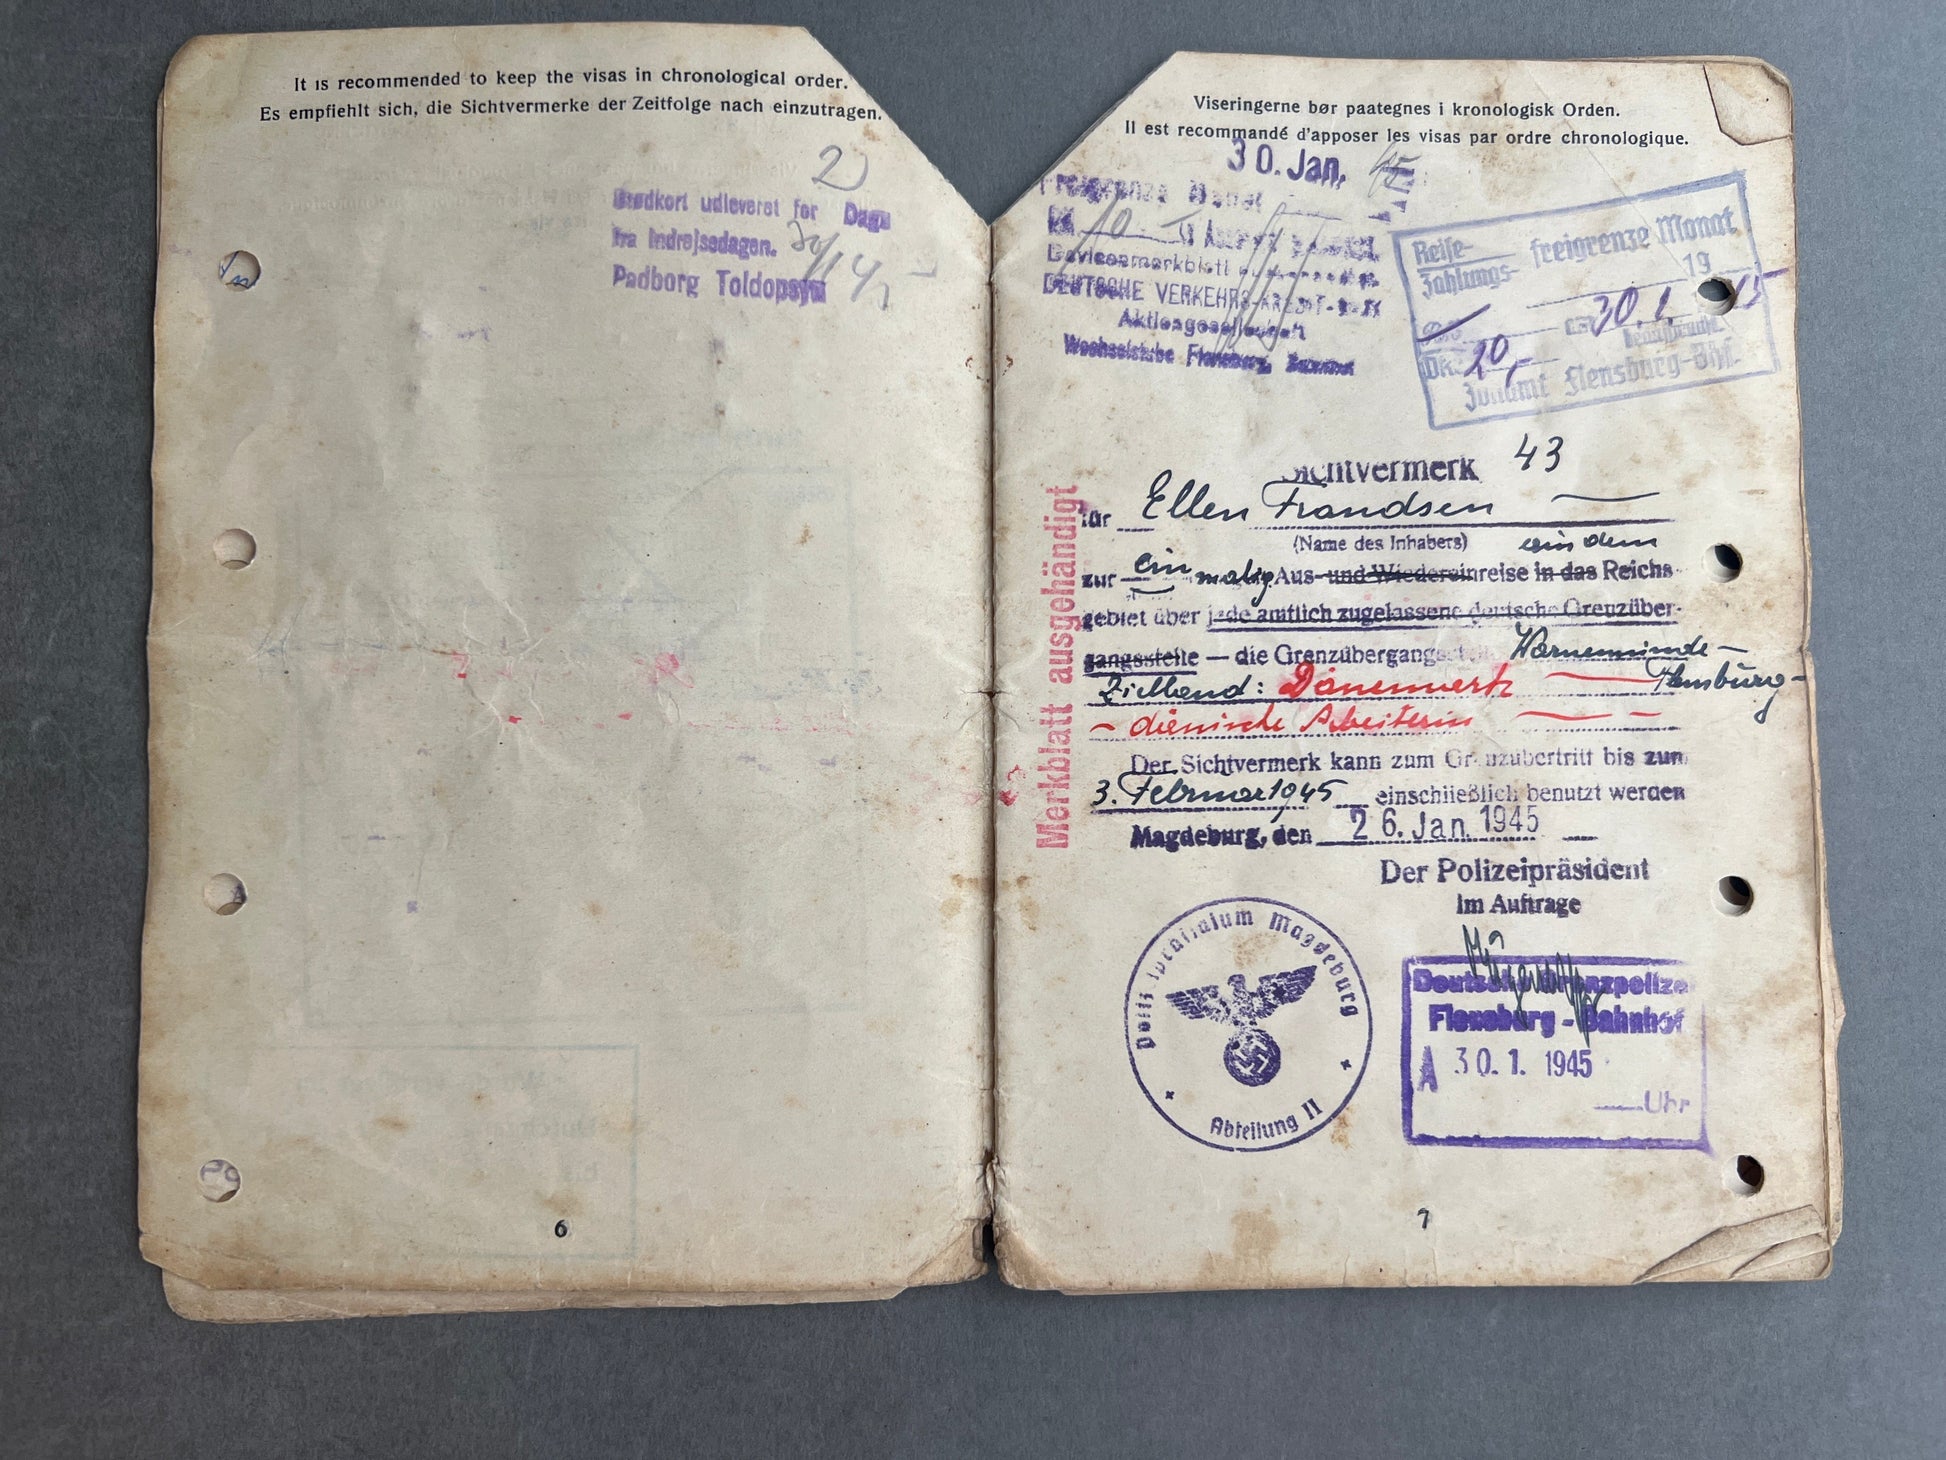 It is recommended to keep the visas in chronological order.
Es empfiehlt sich, die Sichtvermerke der Zeitfolge nach einzutragen.
2
Brødkort udleveret for Dage
fra Indrejsedagen.
Padborg Toldopsyn
6
Viseringerne bør paategnes i kronologisk Orden.
Il est recommandé d'apposer les visas par ordre chronologique.
30. Jan. 45
Freigrenze Monat
RM 10
Devisenmerkblatt
DEUTSCHE VERKEHRS-KREDIT-BANK
Aktiengesellschaft
Wechselstube Flensburg
Reise- freigrenze Monat
Zahlungs- 19
30.1.45
RM 20,-
Zollamt Flensburg-Bhf.
Merkblatt ausgehändigt
Sichtvermerk 43
für Ellen Frandsen
(Name des Inhabers) aus dem
zur ein maligen Aus- und Wiedereinreise in das Reichs-
gebiet über jede amtlich zugelassene deutsche Grenzüber-
gangsstelle — die Grenzübergangsstelle Warnemünde-
Zielland: Dänemark Flensburg-
- dänische Arbeiterin
Der Sichtvermerk kann zum Grenzübertritt bis zum
3. Februar 1945 einschließlich benutzt werden
Magdeburg, den 26. Jan. 1945
Der Polizeipräsident
Im Auftrage
Polizeipräsidium Magdeburg
Abteilung II
Deutsche Grenzpolizei
Flensburg - Bahnhof
A 30.1.1945
Uhr
7